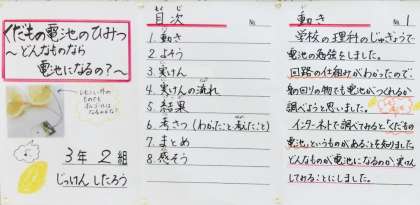 くだもの電池のひみつ
〜どんなものなら
電池になるの？〜
3年2組
じっけん したろう
目次
№
1. 動き
2. よそう
3. 実けん
4. 実けんの流れ
5. 結果
6. 考さつ（わかったこと・考えたこと）
7. まとめ
8. 感そう
動き
№
学校の理科のじゅぎょうで
電池の勉強をしました。
回路の仕組みがわかったので、
身の回りの物でも電池がつくれるか
調べようと思いました。
インターネットで調べてみると「くだもの
電池」というものがあることを知りました
どんなものが電池になるのか実けん
してみることにしました。